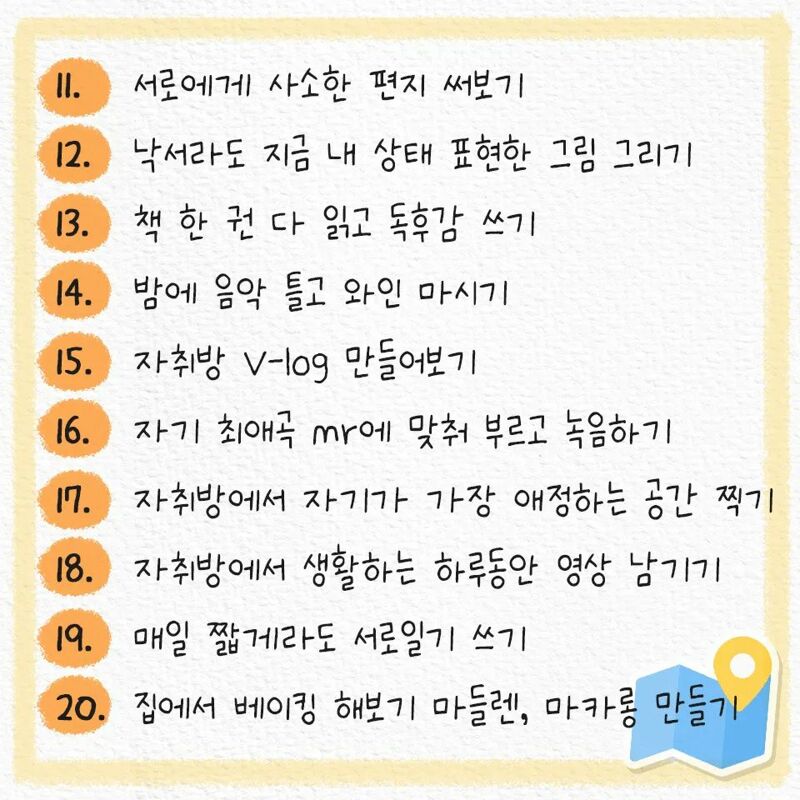 11. 서로에게 사소한 편지 써보기
12. 낙서라도 지금 내 상태 표현한 그림 그리기
13. 책 한 권 다 읽고 독후감 쓰기
14. 밤에 음악 틀고 와인 마시기
15. 자취방 V-log 만들어보기
16. 자기 최애곡 mr에 맞춰 부르고 녹음하기
17. 자취방에서 자기가 가장 애정하는 공간 찍기
18. 자취방에서 생활하는 하루동안 영상 남기기
19. 매일 짧게라도 서로일기 쓰기
20. 집에서 베이킹 해보기 마들렌, 마카롱 만들기